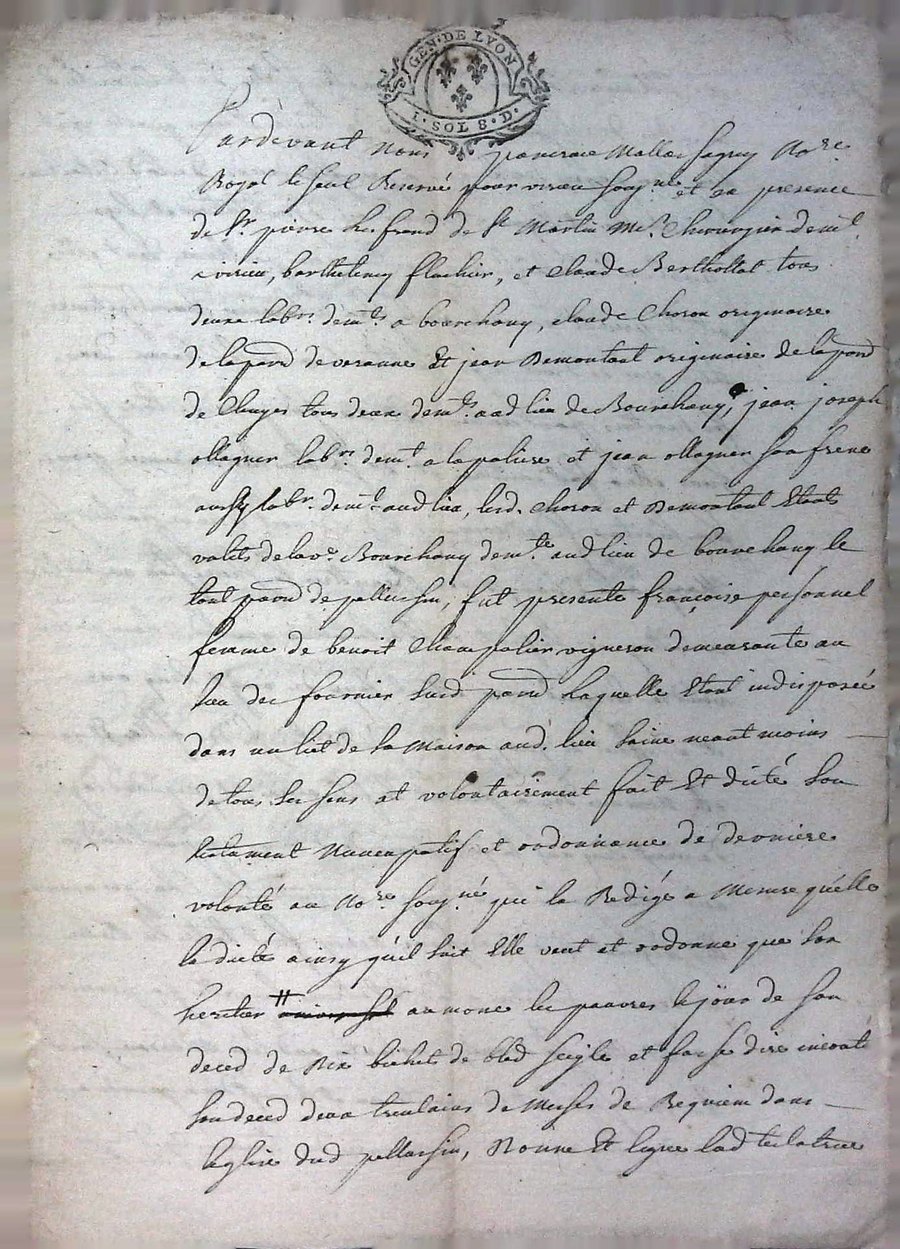 GEN · DE LYON
1 · SOL 8 · D ·
Pardevant Nous pancrace Mallassagny No.re
Royal le seul Reservé pour virieu soug.né et en presence
de S.r pierre de S.t Martin M.e Chirurgien dem.t
a virieu, barthelemy flachier, et Claude Berthollat tous
deux lab.rs dem.ts a bourchany, claude Choron originaire
de la parr de veranne Et jean Demontant originaire de la parr
de Cluges tous deux dem.ts aud lieu de Bourchany, jean joseph
ollagner lab.r dem.t a la paliere et jean ollagner son frere
aussy lab.r dem.t aud lieu, lesd. Choron et Demontant Etants
valets de la v.e Bourchany dem.te aud lieu de bourchany le
tout parr de pellussin, fut presente françoise personnel
femme de benoit Champalier, vigneron demeurante au
lieu de fournier susd parr laquelle Etant indisposée
dans un lict de sa Maison aud. lieu saine neantmoins
de tous ses sens at volontairement fait Et dicté son
testament Nuncupatif et ordonnance de derniere
volonté au No.re soug.né qui la Redigé a Mesure quelle
la dicté ainsy qu'il suit Elle veut et ordonne que son
heritier # universel aumone les pauvres le jour de son
deced de six bichet de bled seigle et fasse dire incont
son deced deux trentains de Messes de Requiem dans
leglise dud pellussin, Donne Et legue lad testatrice